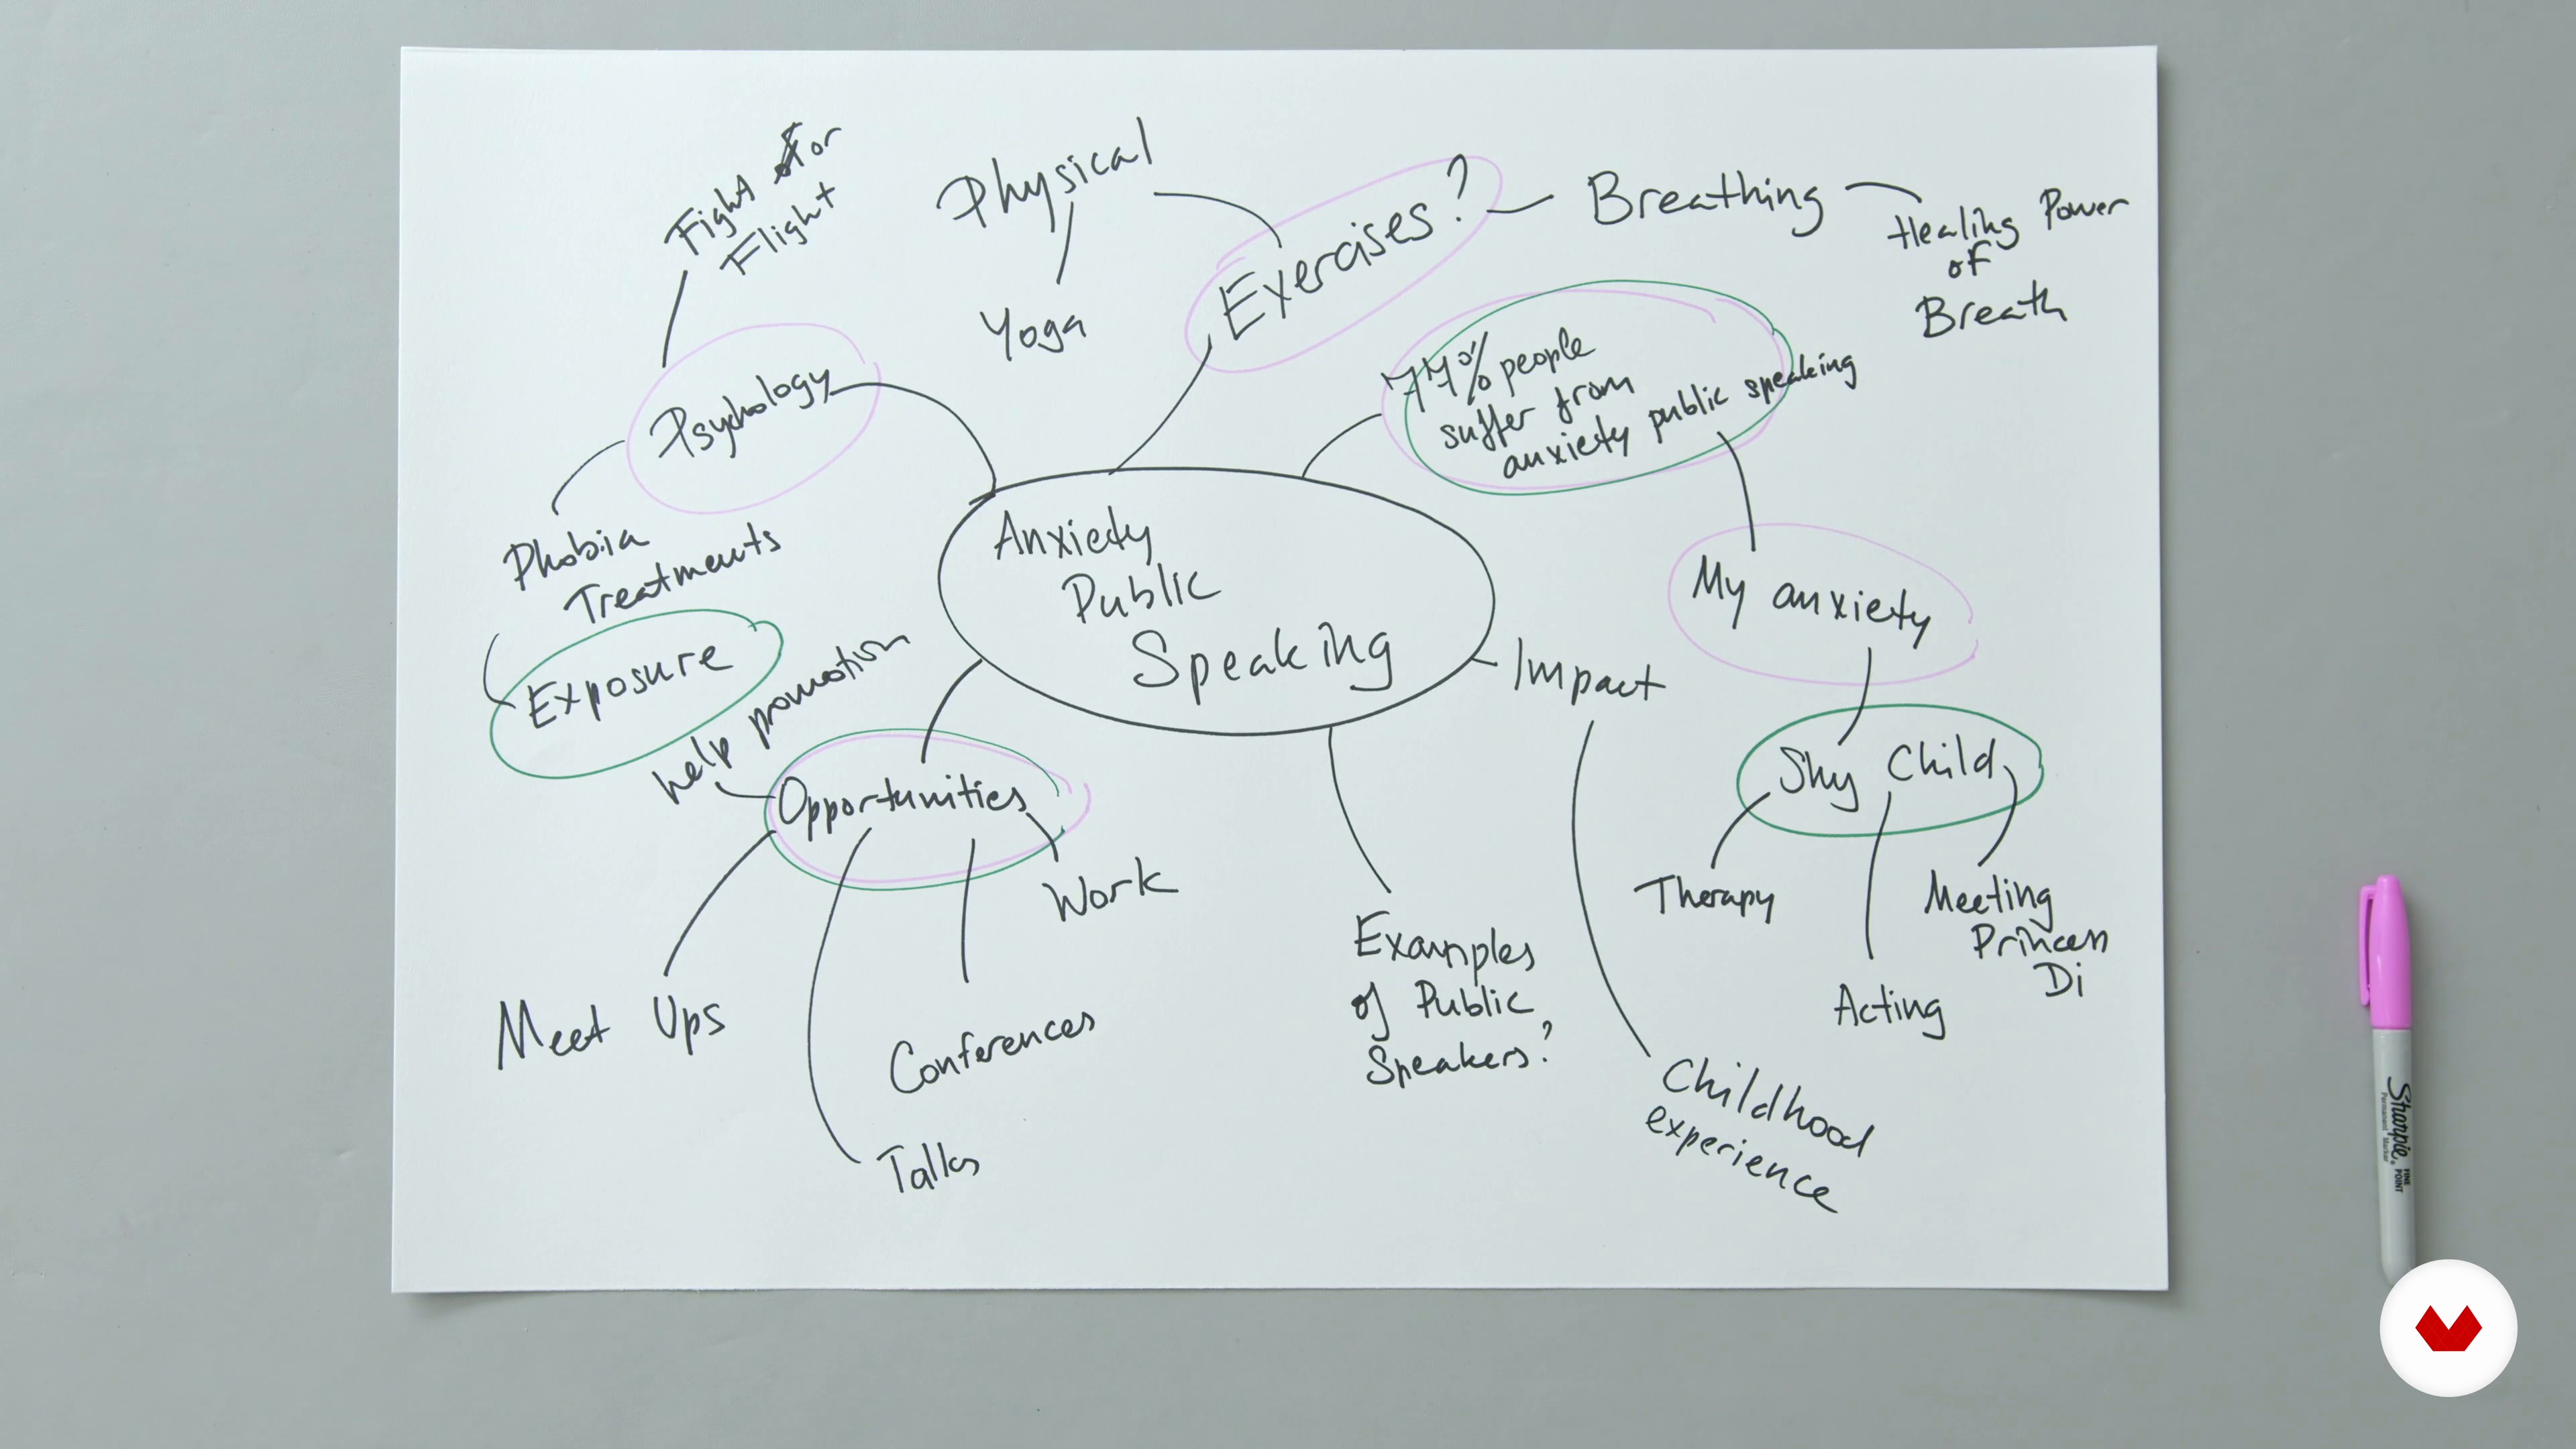 Fight or
Flight
Physical
Yoga
Exercises?
Breathing
Healing Power
of
Breath
Psychology
77% people
suffer from
anxiety public speaking
Phobia
Treatments
Exposure
Anxiety
Public
Speaking
My anxiety
Impact
help promotion
Opportunities
Shy Child
Work
Meet Ups
Conferences
Talks
Examples
of Public
Speakers?
Therapy
Acting
Meeting
Princess
Di
Childhood
experience
Sharpie
FINE
POINT
Permanent Marker